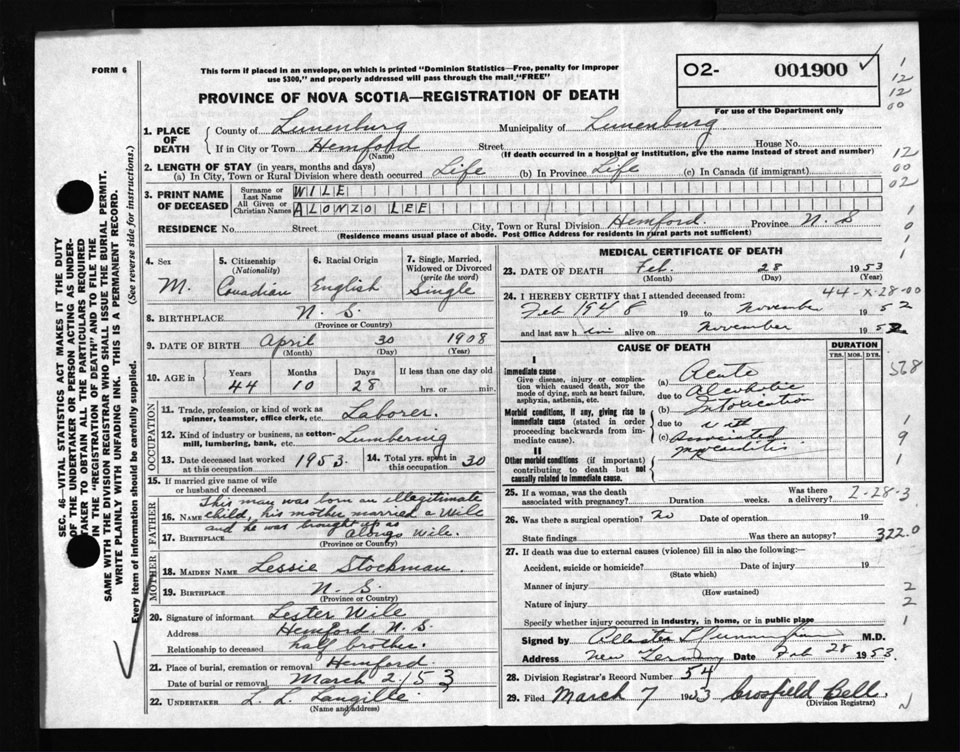 FORM 6
This form if placed in an envelope, on which is printed "Dominion Statistics—Free, penalty for improper
use $300," and properly addressed will pass through the mail "FREE"
PROVINCE OF NOVA SCOTIA—REGISTRATION OF DEATH
O2- 001900
For use of the Department only
1. PLACE OF DEATH
County of Lunenburg Municipality of Lunenburg
If in City or Town Hemford Street House No.
(Name) (If death occurred in a hospital or institution, give the name instead of street and number)
2. LENGTH OF STAY (in years, months and days)
(a) In City, Town or Rural Division where death occurred Life (b) In Province Life (c) In Canada (if immigrant)
3. PRINT NAME OF DECEASED
Surname or Last Name WILE
All Given or Christian Names ALONZO LEE
RESIDENCE No. Street City, Town or Rural Division Hemford. Province N. S
(Residence means usual place of abode. Post Office Address for residents in rural parts not sufficient)
4. Sex M.
5. Citizenship (Nationality) Canadian
6. Racial Origin English
7. Single, Married, Widowed or Divorced (write the word) Single
8. BIRTHPLACE N. S.
(Province or Country)
9. DATE OF BIRTH April 30 1908
(Month) (Day) (Year)
10. AGE in Years Months Days If less than one day old
44 10 28 hrs. or min.
OCCUPATION
11. Trade, profession, or kind of work as spinner, teamster, office clerk, etc. Laborer.
12. Kind of industry or business, as cotton-mill, lumbering, bank, etc. Lumbering
13. Date deceased last worked at this occupation 1953. 14. Total yrs. spent in this occupation 30
15. If married give name of wife or husband of deceased
FATHER
This man was born an illegitimate
16. Name child, his mother married a Wile
and he was brought up as
17. BIRTHPLACE Alonzo Wile.
(Province or Country)
MOTHER
18. MAIDEN NAME Lessie Stockman.
19. BIRTHPLACE N. S.
(Province or Country)
20. Signature of informant Lester Wile
Address Hemford, N. S.
Relationship to deceased half brother.
21. Place of burial, cremation or removal Hemford
Date of burial or removal March 2/53
22. UNDERTAKER L. L. Langille.
(Name and address)
MEDICAL CERTIFICATE OF DEATH
23. DATE OF DEATH Feb. 28 1953
(Month) (Day) (Year)
44-X-28-00
24. I HEREBY CERTIFY that I attended deceased from:
Feb 1948 19 to November 1952
and last saw him alive on November 1952
CAUSE OF DEATH
DURATION
YRS. MOS. DYS.
I
Immediate cause
Give disease, injury or complication which caused death, not the mode of dying, such as heart failure, asphyxia, asthenia, etc.
Morbid conditions, if any, giving rise to immediate cause (stated in order proceeding backwards from immediate cause).
II
Other morbid conditions (if important) contributing to death but not causally related to immediate cause.
(a) Acute
due to Alcoholic
(b) Intoxication
due to with
(c) Associated
myocarditis
25. If a woman, was the death associated with pregnancy? Duration weeks. Was there a delivery? 2-28-3
26. Was there a surgical operation? No Date of operation 19
State findings Was there an autopsy? 322.0
27. If death was due to external causes (violence) fill in also the following:—
Accident, suicide or homicide? Date of injury 19
(State which)
Manner of injury
(How sustained)
Nature of injury
Specify whether injury occurred in industry, in home, or in public place
Signed by M.D.
Address New Germany Date Feb 28 1953.
28. Division Registrar's Record Number 54
29. Filed March 7 1953 Crosfield Bell.
(Division Registrar)
SEC. 46- VITAL STATISTICS ACT MAKES IT THE DUTY
OF THE UNDERTAKER OR PERSON ACTING AS UNDER-
TAKER TO OBTAIN ALL THE PARTICULARS REQUIRED
IN THE "REGISTRATION OF DEATH" AND TO FILE THE
SAME WITH THE DIVISION REGISTRAR WHO SHALL ISSUE THE BURIAL PERMIT.
WRITE PLAINLY WITH UNFADING INK. THIS IS A PERMANENT RECORD.
Every item of information should be carefully supplied. (See reverse side for instructions.)
1
12
12
00
12
00
02
1
0
1
568
1
9
1
2
2
1